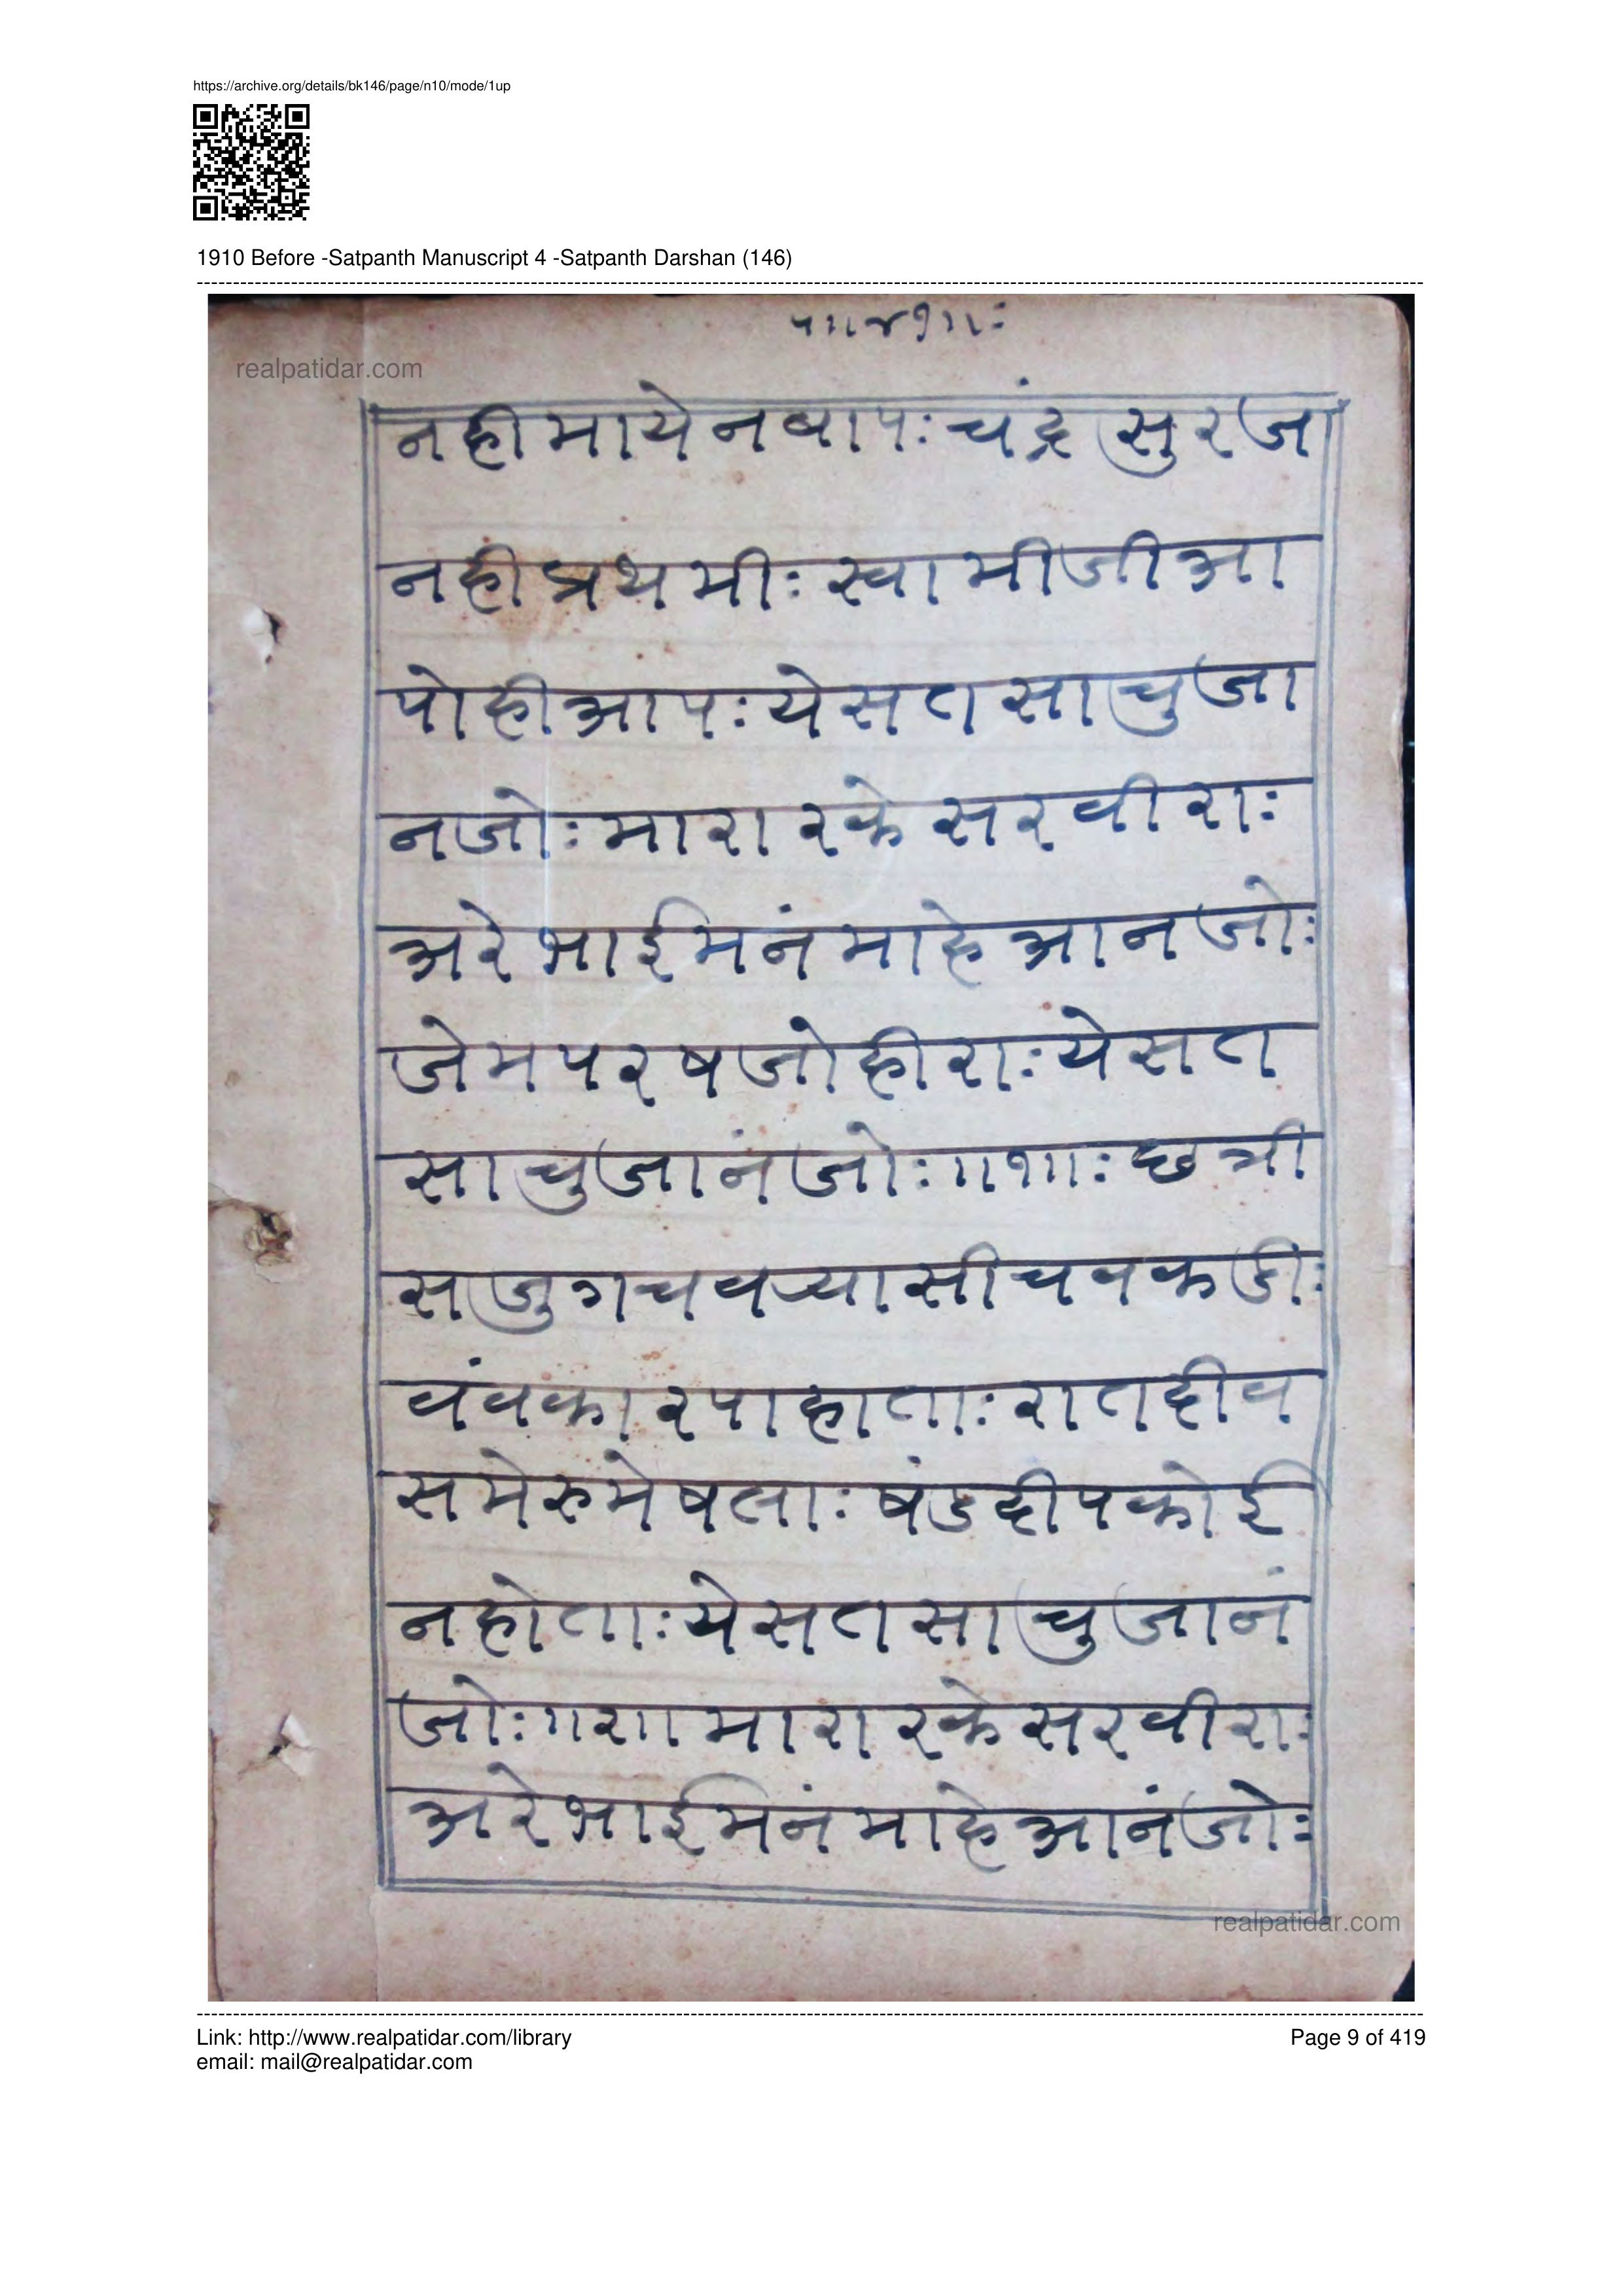 https://archive.org/details/bk146/page/n10/mode/1up
1910 Before -Satpanth Manuscript 4 -Satpanth Darshan (146)
realpatidar.com
नहीमायेनबापःचंद्रसुरजा
नहीप्रथमीःस्वामीजीआ
पोहीआपःयेसतसाचुजा
नजोःमारारकेसरवीराः
अरेभाईमनंमाहेआनजोः
जेमपरषजोहीराःयेसत
साचुजानंजोः॥१॥ःछत्री
सजुगचवर्‍यासीचवकडीः
वंवकारपाहाताःरातदीव
समेरुमेषलाःषंडदीपकोई
नहोताःयेसतसाचुजानं
जोः॥२॥मारारकेसरवीराः
अरेभाईमनंमाहेआनंजोः
realpatidar.com
Link: http://www.realpatidar.com/library
Page 9 of 419
email: mail@realpatidar.com